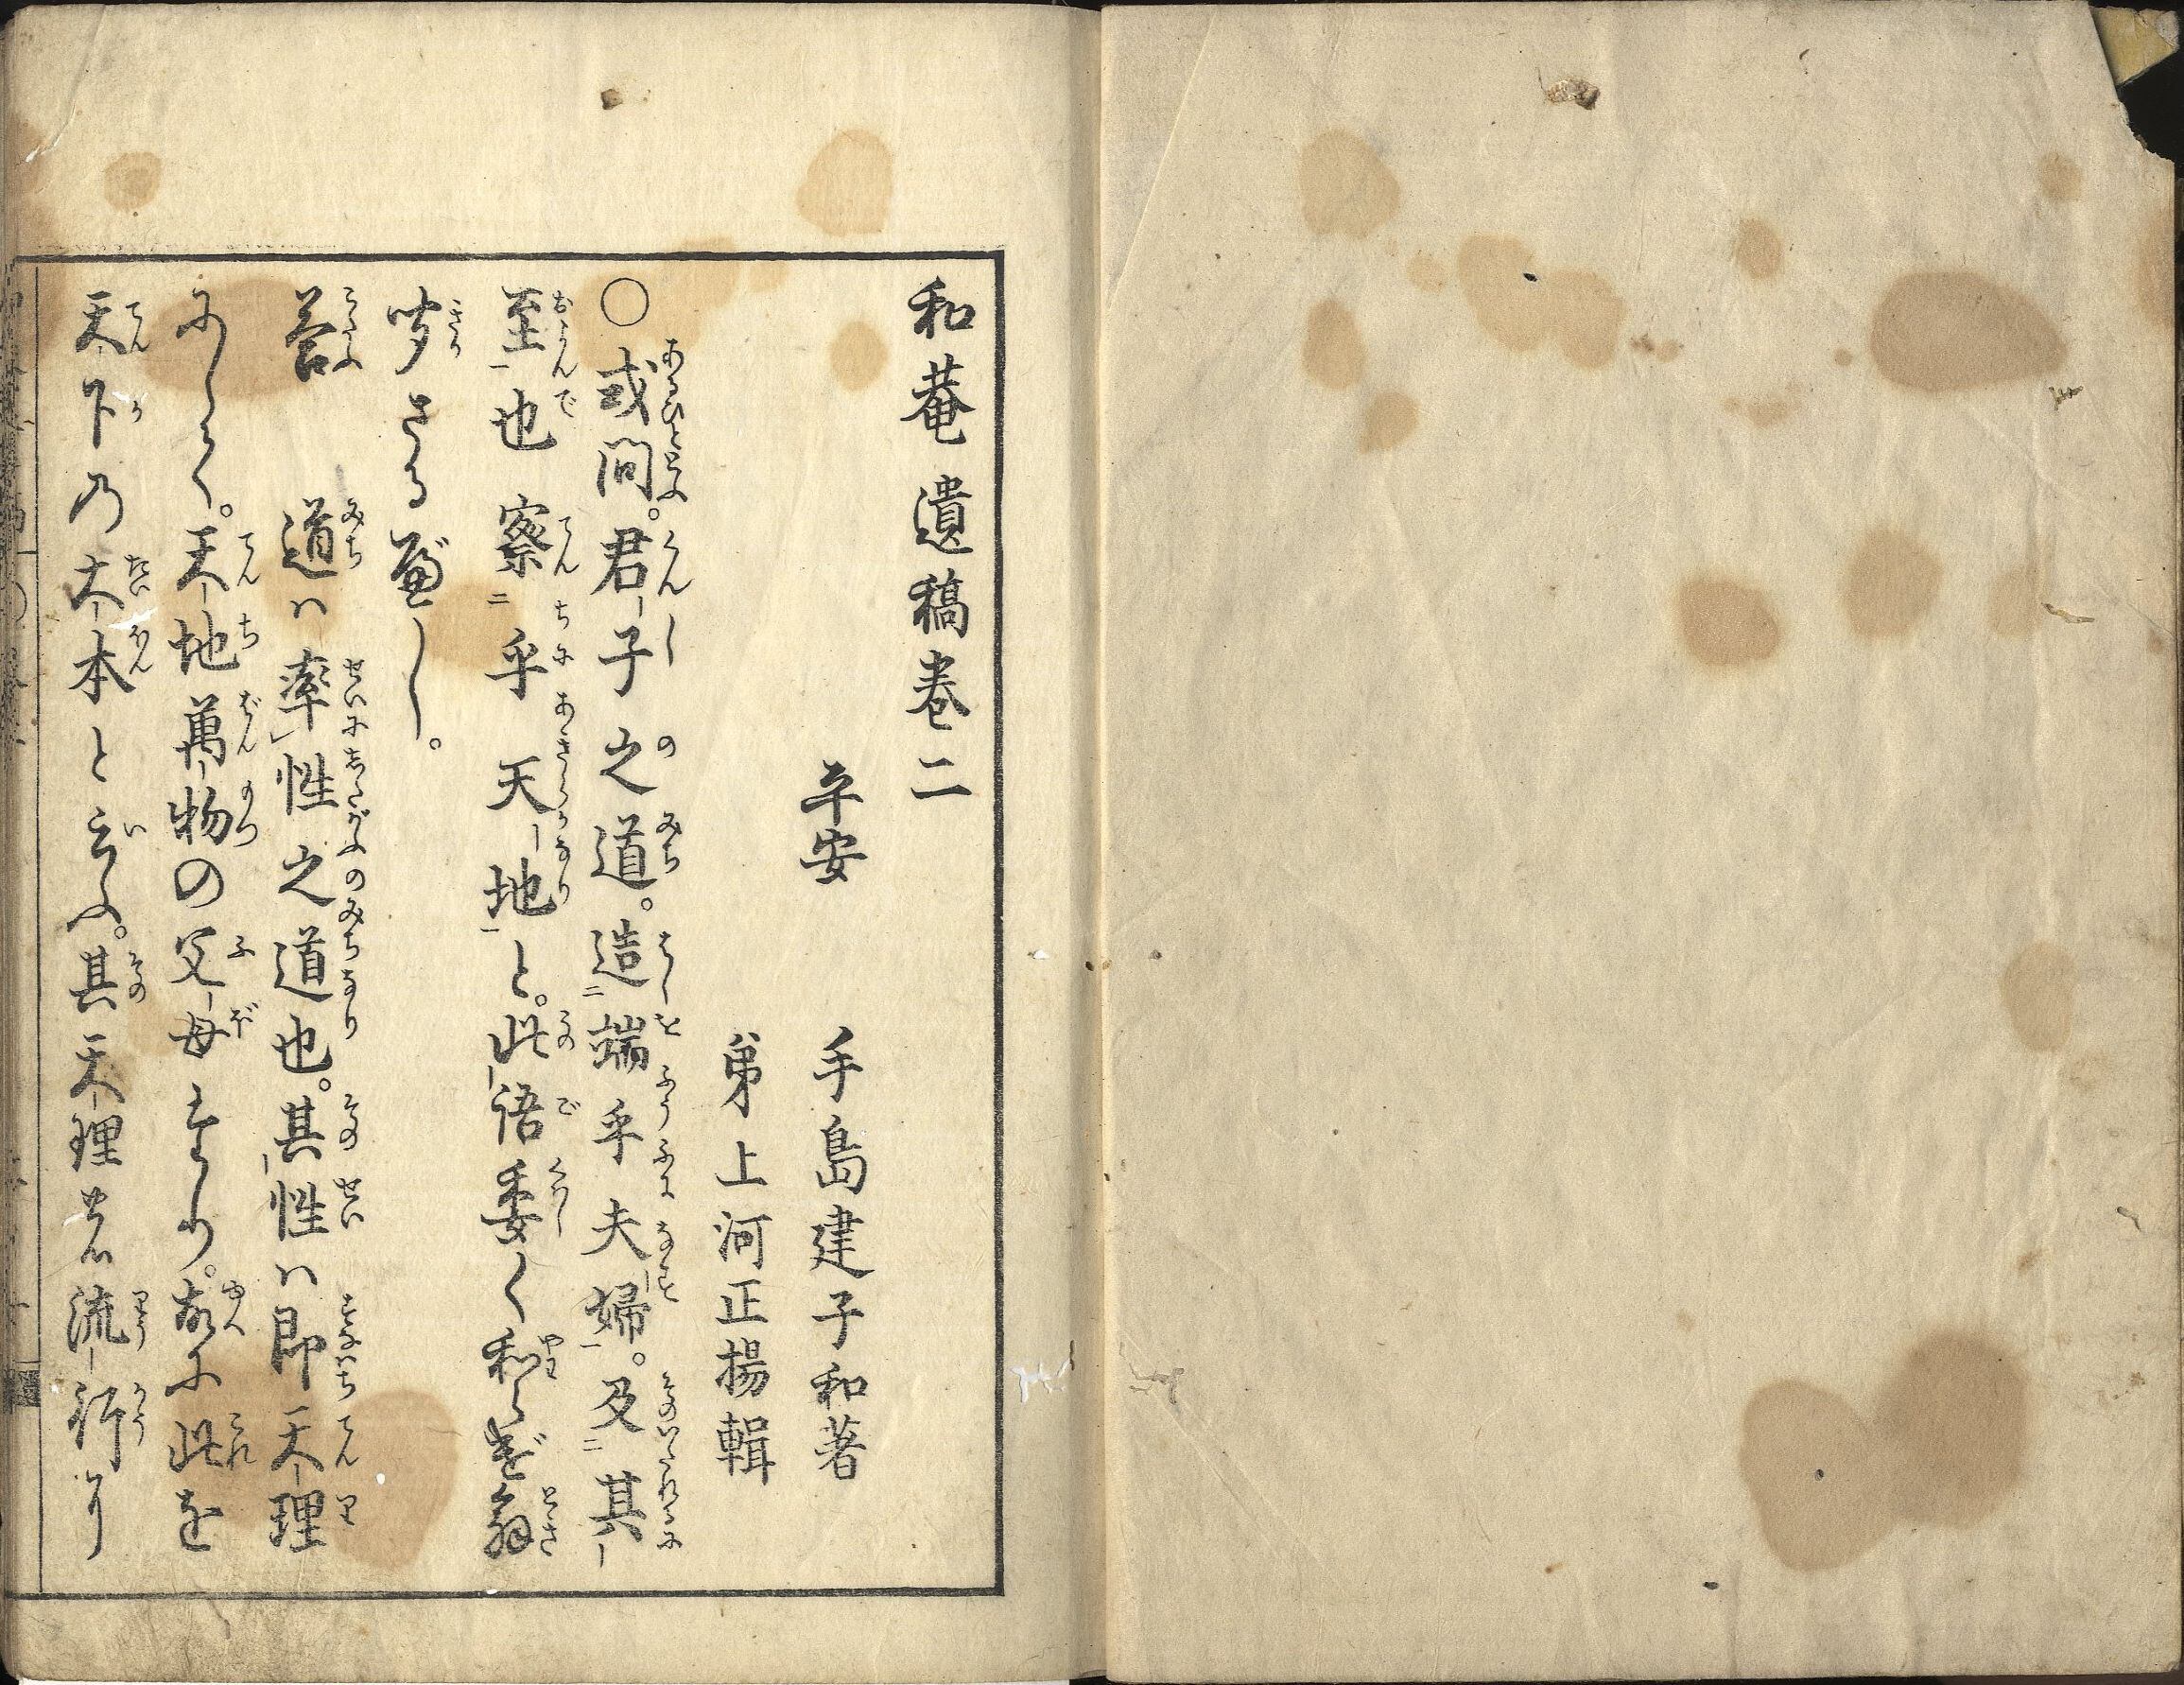 和菴遺稿巻二
平安　手島建子和著
弟上河正揚輯
○或問。君子之道。造端乎夫婦。及其
至也察乎天地と。此語委く和らげ翁
聞さるべし。
答　道ハ率性之道也。其性ハ即天理
にして。天地萬物の父母たり。故に此を
天下の大本と云ふ。其天理の流行